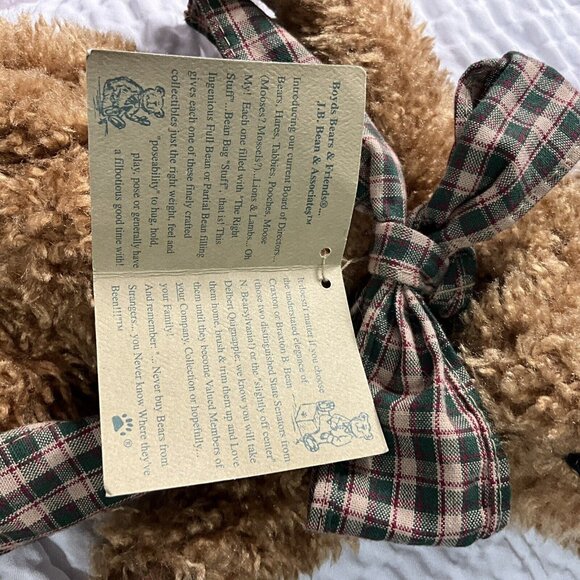 Boyds Bears & Friends®...
J.B. Bean & Associates™
Introducing our current Board of Directors...
Bears, Hares, Tabbies, Pooches, Moose
(Mooses? Mossels?)...Lions & Lamb... Oh
My! Each one filled with "The Right
Stuff"...Bean Bag "Stuff", that is! This
Ingenious Full Bean or Partial Bean filling
gives each one of these finely crafted
collectibles just the right weight, feel and
"poseability" to hug, hold,
play, pose or generally have
a filbodious good time with!
It doesn't matter if you choose
the understated elegance of
Braxton B. Bean
(those two distinguished State Senators from
N. Beansylvania!) or the "slightly off center"
Delbert Quignapple, we know you will take
them home, brush & trim them up and Love
them until they become Valued Members of
your Company, Collection or hopefully...
your Family!
And remember: "... Never buy Bears from
Strangers... you Never know Where they've
Been!!!"™
®